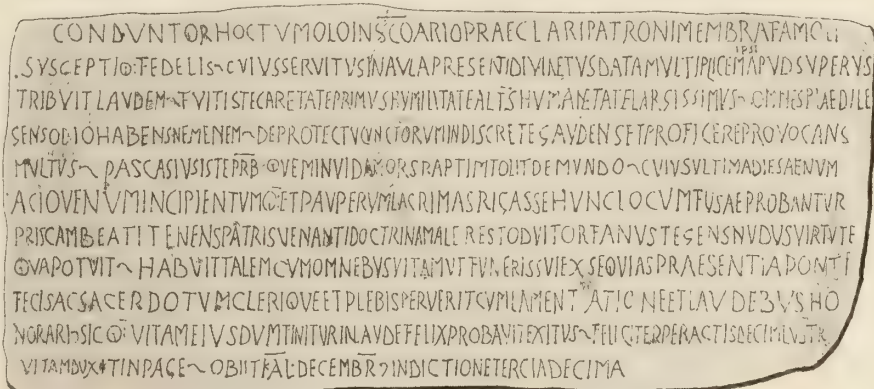 CONDVNTOR HOC TVMOLO IN SCOARIO PRAECLARI PATRONI MEMBRA FAMOLI
SVSCEPTIQ: FEDELIS CVIVS SERVITVS IN AVLA PRESENTI DIVINETVS DATA MVLTIPLICEM IPSI APVD SVPERVS
TRIBVIT LAVDEM FVIT ISTE CARETATE PRIMVS HVMILITATE ALTS HVMANETATE LARSISSIMVS OMNES PLAEDILE
SENS ODIO HABENS NEMENEM DE PROTECTV CVNCTORVM INDISCRETE GAVDENS ET PROFICERE PROVOCANS
MVLTVS PASCASIVS ISTE PRB QVEM INVIDA MORS RAPTIM TOLIT DE MVNDO CVIVS VLTIMA DIE SAENVM
AC IOVENVM INCIPIENTVMQ: ET PAVPERVM LACRIMAS RIGASSE HVNC LOCVM FVSAE PROBANTVR
PRISCAM BEATI TENENS PATRIS VENANTI DOCTRINAM ALERE STODVIT ORFANVS TEGENS NVDVS VIRTVTE
QVA POTVIT HABVIT TALEM CVM OMNEBVS VITAM VT FVNERIS SVI EXSEQVIAS PRAESENTIA PONTI
FECIS AC SACERDOTVM CLERIQVE ET PLEBIS PERVERIT CVM LAMENTATIONE ET LAVDEBVS HO
NORARI SIC Q: VITAM EIVS DVM FINITVR IN LAVDE FELIX PROBAVIT EXITVS FELICITER PERACTIS DECIM LVSTR
VITAM DVXIT IN PACE OBIIT KAL DECEMBR INDICTIONE TERCIA DECIMA